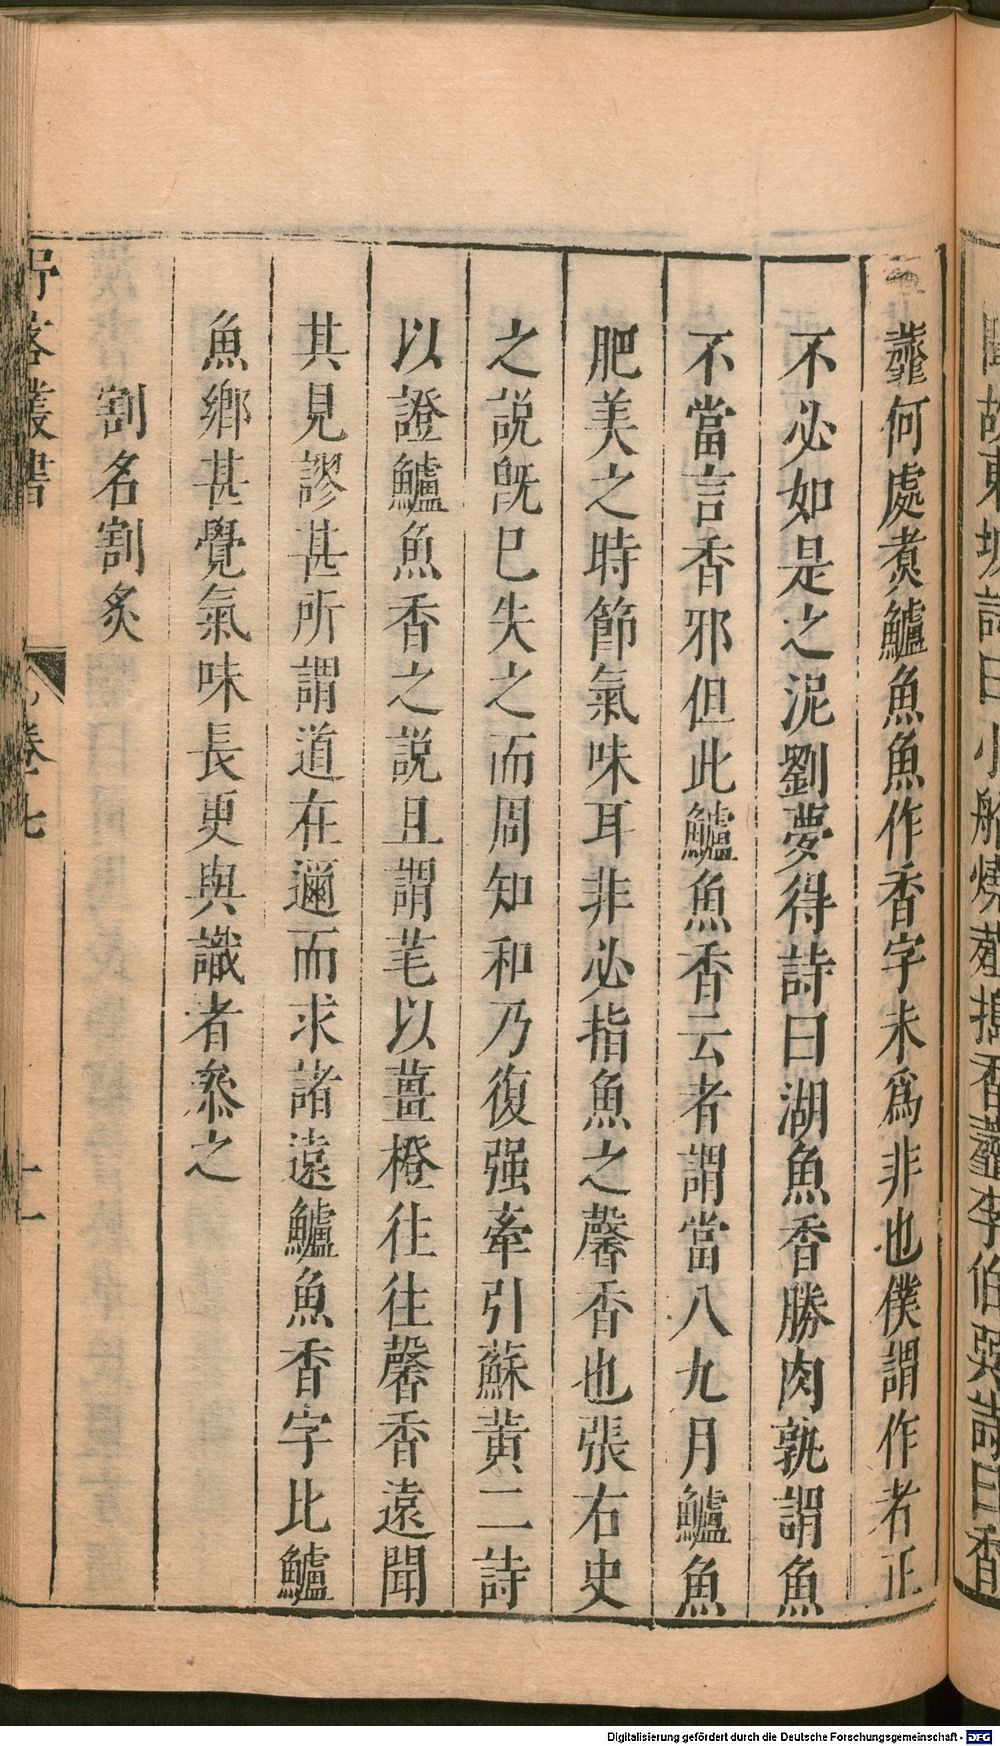 虀何處煮鱸魚魚作香字未爲非也僕謂作者正
不必如是之泥劉夢得詩曰湖魚香勝肉孰謂魚
不當言香邪但此鱸魚香云者謂當八九月鱸魚
肥美之時節氣味耳非必指魚之馨香也張右史
之説旣已失之而周知和乃復强牽引蘇黃二詩
以證鱸魚香之説且謂芼以薑橙往往馨香遠聞
其見謬甚所謂道在邇而求諸遠鱸魚香字比鱸
魚鄉甚覺氣味長更與識者叅之
割名割炙
叢書
卷七
十一
東坡詩曰小船燒薤擣香虀李伯巽詩曰香
Digitalisierung gefördert durch die Deutsche Forschungsgemeinschaft - DFG